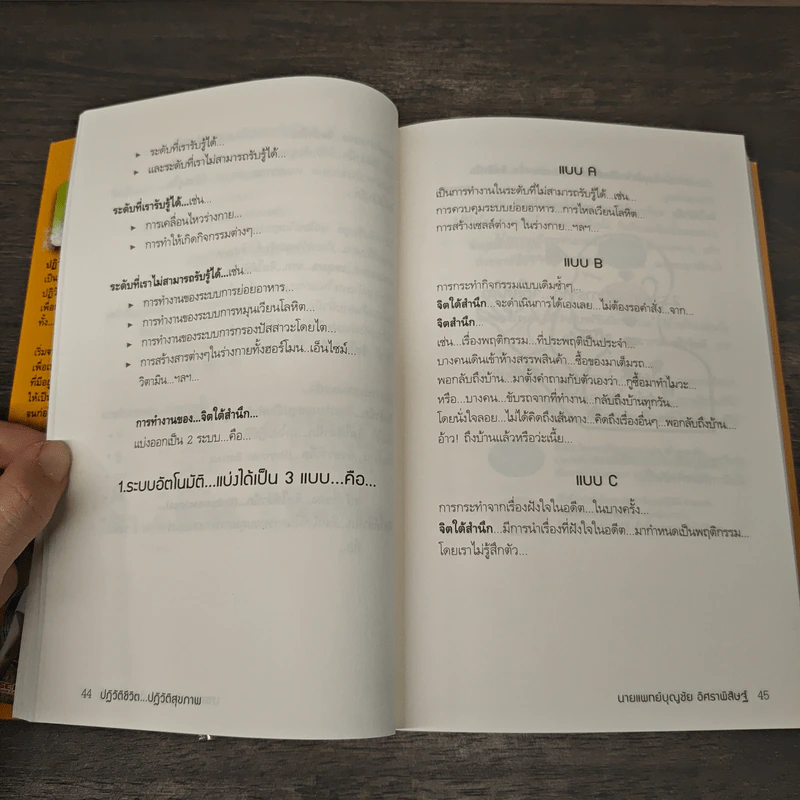 ระดับที่เรารับรู้ได้...
และระดับที่เราไม่สามารถรับรู้ได้...
ระดับที่เรารับรู้ได้...เช่น...
การเคลื่อนไหวร่างกาย...
การทำให้เกิดกิจกรรมต่างๆ...
ระดับที่เราไม่สามารถรับรู้ได้...เช่น...
การทำงานของระบบการย่อยอาหาร...
การทำงานของระบบการหมุนเวียนโลหิต...
การทำงานของระบบการกรองปัสสาวะโดยไต...
การสร้างสารต่างๆในร่างกายทั้งฮอร์โมน..เอ็นไซม์
วิตามิน...ฯลฯ...
การทำงานของ...จิตใต้สำนึก...
แบ่งออกเป็น 2 ระบบ...คือ...
1.ระบบอัตโนมัติ...แบ่งได้เป็น 3 แบบ...คือ...
44 ปฏิวัติชีวิต...ปฏิวัติสุขภาพ
แบบ A
เป็นการทำงานในระดับที่ไม่สามารถรับรู้ได้...เช่น...
การควบคุมระบบย่อยอาหาร...การไหลเวียนโลหิต...
การสร้างเซลล์ต่างๆ ในร่างกาย...ฯลฯ...
แบบ B
การกระทำกิจกรรมแบบเดิมซ้ำๆ...
จิตใต้สำนึก...จะดำเนินการได้เองเลย...ไม่ต้องรอคำสั่ง...จาก...
จิตสำนึก...
เช่น...เรื่องพฤติกรรม...ที่ประพฤติเป็นประจำ...
บางคนเดินเข้าห้างสรรพสินค้า...ซื้อของมาเต็มรถ...
พอกลับถึงบ้าน...มาตั้งคำถามกับตัวเองว่า...กูซื้อมาทำไมวะ...
หรือ...บางคน...ขับรถจากที่ทำงาน...กลับถึงบ้านทุกวัน...
โดยนั่งใจลอย...ไม่ได้คิดถึงเส้นทาง...คิดถึงเรื่องอื่นๆ...พอกลับถึงบ้าน....
อ้าว! ถึงบ้านแล้วหรือว่ะเนี้ย...
แบบ C
การกระทำจากเรื่องฝังใจในอดีต...ในบางครั้ง...
จิตใต้สำนึก...มีการนำเรื่องที่ฝังใจในอดีต...มากำหนดเป็นพฤติกรรม...
โดยเราไม่รู้สึกตัว...
นายแพทย์บุญชัย อิศราพิสิษฐ์ 45